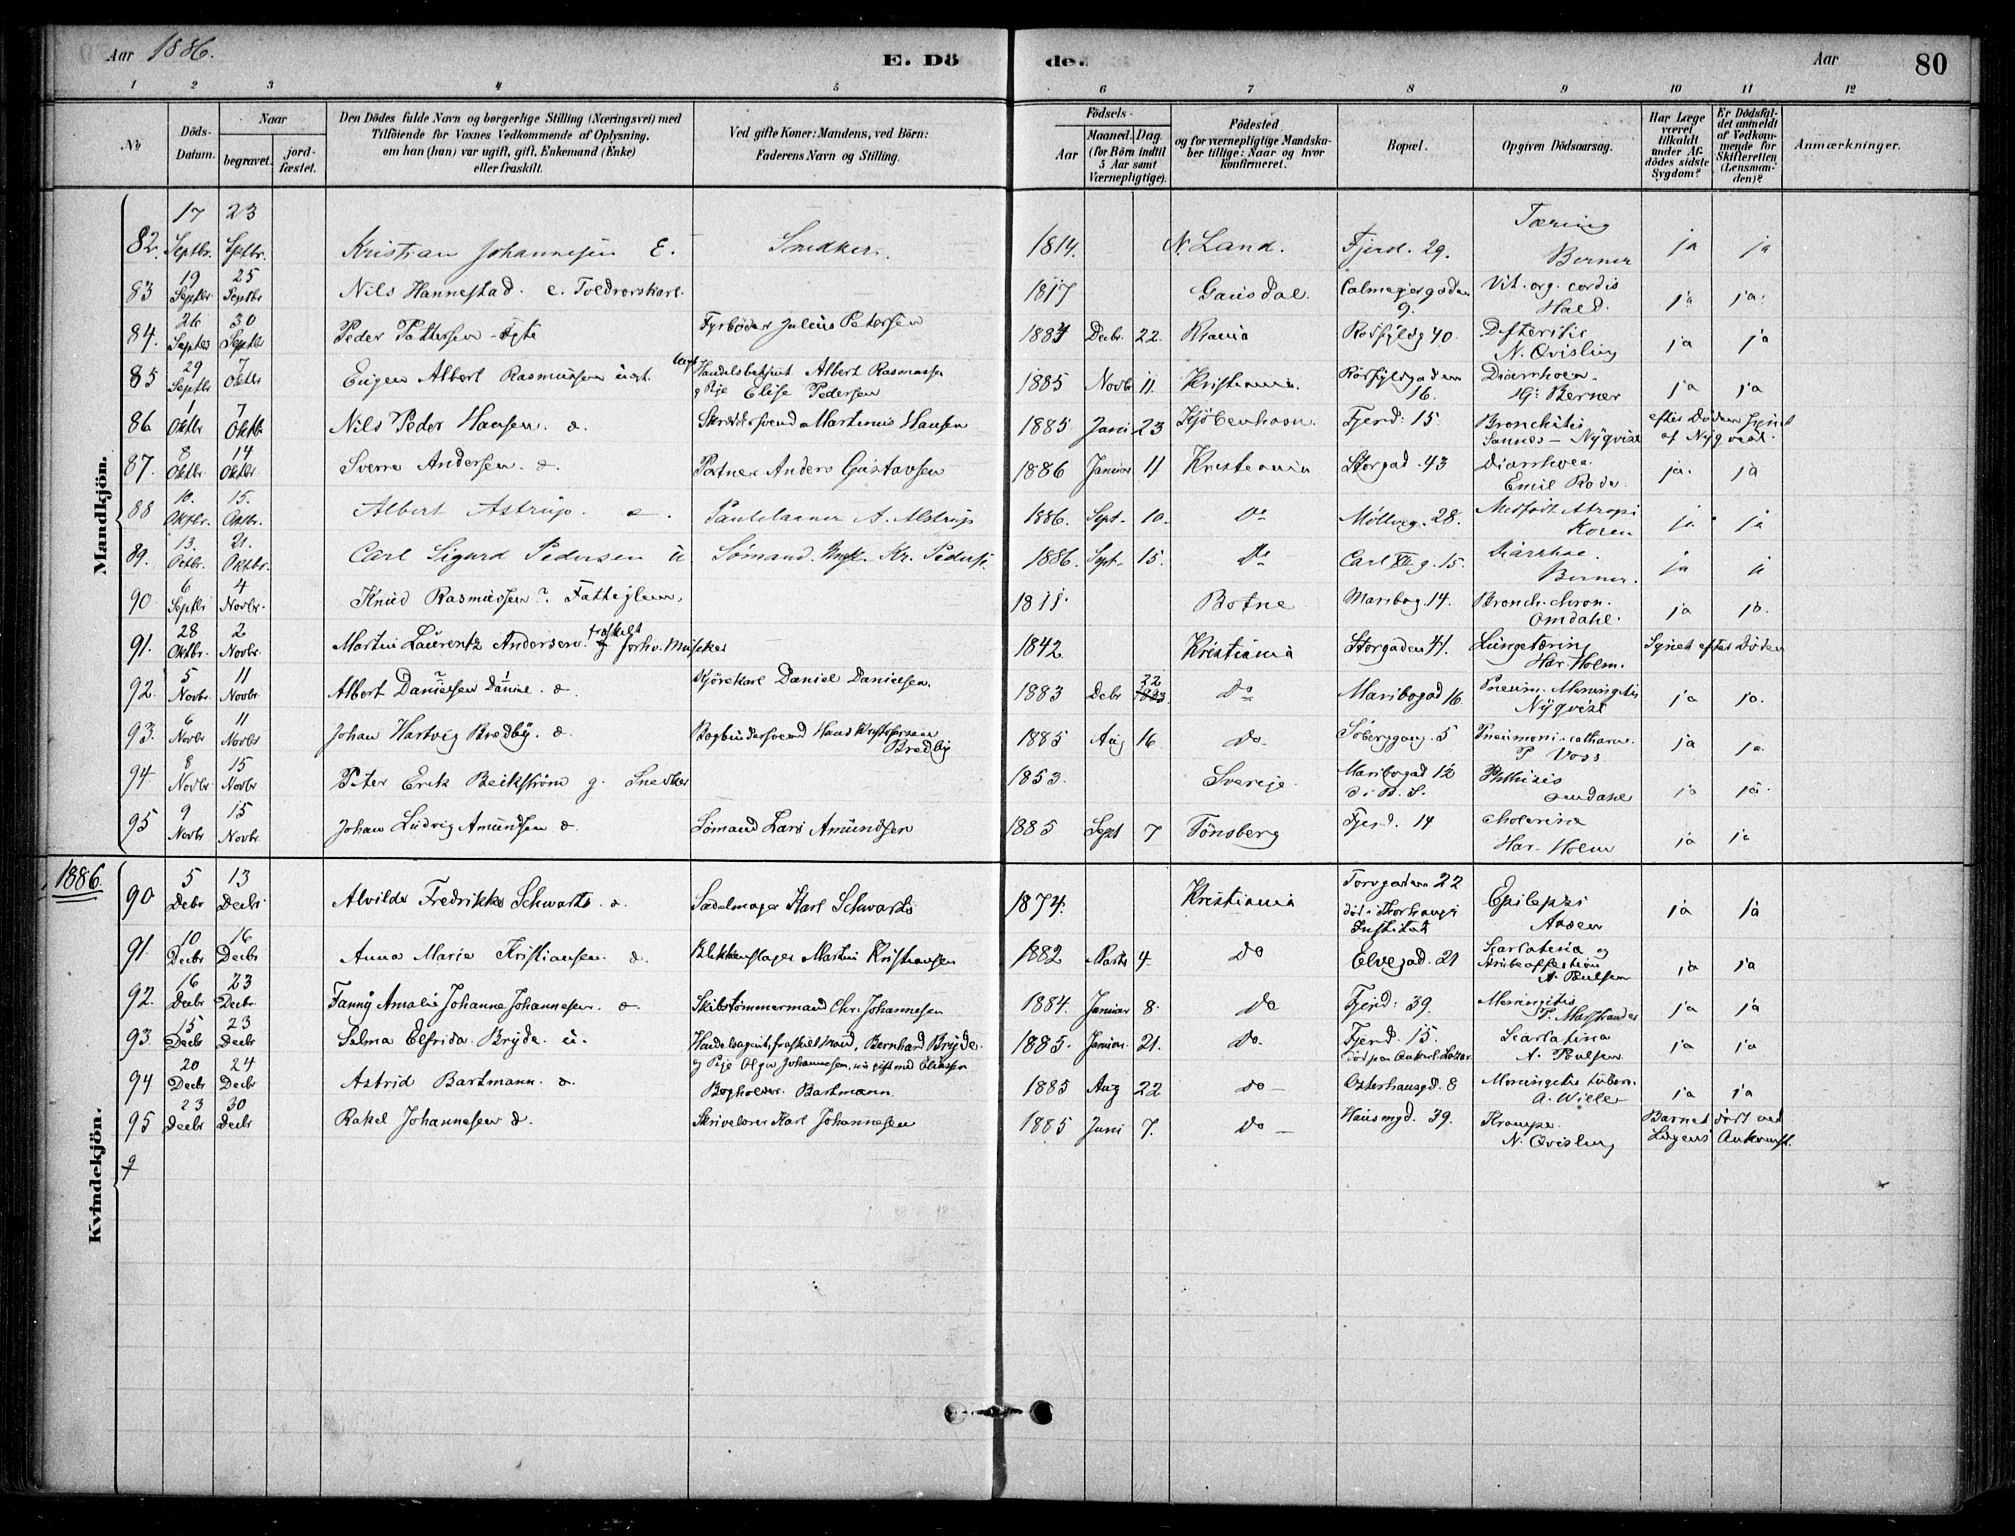 Aar 1886. E. Dö de. Aar 80
1 2 3 4 5 6 7 8 9 10 11 12
No
Döds-Datum.
Naar
begravet.
jord-fæstet.
Den Dödes fulde Navn og borgerlige Stilling (Næringsvei) med
Tilföiende for Voxnes Vedkommende af Oplysning,
om han (hun) var ugift, gift, Enkemand (Enke)
eller fraskilt.
Ved gifte Koner: Mandens, ved Börn:
Faderens Navn og Stilling.
Födsels-
Aar
Maaned. Dag.
(for Börn indtil
5 Aar samt
Værnepligtige).
Födested
og for værnepligtige Mandska-
ber tillige: Naar og hvor
konfirmeret.
Bopæl.
Opgiven Dödsaarsag.
Har Læge
været
tilkaldt
under Af-
dödes sidste
Sygdom?
Er Dödsfal-
det anmeldt
af Vedkom-
mende for
Skifteretten
(Lensman-
den)?
Anmærkninger.
Mandkjön.
82. 17 Septbr. 23 Septbr. Kristian Johannesen E. Snedker. 1814. N. Land. Fjerd. 29. Tæring Berner ja ja
83 19 Septbr 25 Septbr Nils Hannestad e. Toldrorskarl. 1817 Gausdal Calmeyergaden 9. Vit. org. cordis Hald. ja ja.
84. 26 Septbr 30 Septbr Peder Pettersen - ægte Fyrbøder Julius Petersen 1883 Decbr. 22. Krania Rosfyldg 40. Difteritis N. Qvisling ja ja
85 29 Septbr 7 Oktbr Eugen Albert Rasmussen uegt. Handelsbetjent Albert Rasmussen og Pige Elise Pedersen 1885 Novbr 11. Kristiania. Rosfyldgaden 16. Diarrhoea. Hj. Berner ja ja
86. 1 Oktbr 7 Oktbr Nils Peder Hansen. æ. Skræddersvend Martinus Hansen 1885 Juni 23 Kjöbenhavn Fjerd: 15 Bronchitis Sannes - Nyqvist efter Døden synet af Nyqvist.
87. 8 Oktbr 14 Oktbr Sverre Andersen. æ. Portner Anders Gustavsen 1886 Januar 11 Kristiania Storgad. 43 Diarrhoea. Emil Rode. ja. ja
88 10. Oktbr. 15. Oktbr. Albert Astrup. æ. Pantelaaner A. Astrup 1886. Sept. 10. Do Mölleng. 28. Medfødt Atropi Koren ja ja
89. 13. Octbr. 21. Oktbr. Carl Sigurd Pedersen u Sømand Kr. Peders. 1886. Sept. 15. Do Carl XII g. 15. Diarrhoe. Berner. ja ja
90 6 Septbr 4 Novbr. Knud Rasmussen? Fattiglem. 1811. Botne Maribog. 14. Bronch. chron. Omdahl. ja ja.
91. 28 Oktbr. 2 Novbr. Martin Laurentz Andersen. fraskilt forhv. Musiker 1842. Kristiania Storgaden 41. Lungetæring Har. Holm. Synet efter Døden
92. 5 Novbr. 11 Novbr. Albert Danielsen Daniel. æ. Kjørekarl Daniel Danielsen. 1883 Debr 22 Do Maribogad 16 Pneum. Meningitis Nyqvist ja ja.
93. 6 Novbr 11 Novbr Johan Hartvig Bredby. æ. Bogbindersvend Hans Kristofersen Bredby 1885 Aug 16 do. Söberggang. 5 Pneumoni. catharr. P. Voss ja ja.
94. 8 Novbr. 15 Novbr. Peter Erik Beckström g. Snedker 1853. Sverige. Maribogad 12 d. i B. S. Phthisis Omdahl ja ja.
95. 9 Novbr 15 Novbr. Johan Ludvig Amundsen æ Sømand Lars Amundsen 1885 Sept 7 Tönsberg Fjerd. 14 Cholerine Har. Holm ja ja
1886.
Kvindekjön.
90 5 Debr 13 Decbr Alvilde Fredrikke Schwartz. æ. Sadelmager Karl Schwartz 1874. Kristiania Torvgaden 22 død i Thorhaugs Institut Epilepsi Aasen ja ja
91. 10 Decbr 16 Decbr Anna Marie Kristiansen. æ. Blikkenslager Martin Kristiansen 1882 Marts 4 do Elvegad. 21 Scarlatina og Strubeaffection A. Poulsen ja ja
92. 16 Decbr 23 Decbr. Fanny Amalie Johanne Johannesen. æ Skibstömmermand Chr. Johannesen 1884. Januar 8. do Fjerd: 39. Meningitis P. Marstrander ja ja
93. 15 Decbr 23 Decbr Selma Elfrida Bryde. u. Handelsagent, fraskilt Mand, Bernhard Bryde. og Pige Olga Johannesen, nu gift med Eliassen 1885. Januar. 21. do. Fjerd. 15. Död paa Ankerl. Lazar. Scarlatina A. Poulsen ja ja
94 20 Decbr 24 Decbr Astrid Bartmann. æ. Bogholder. Bartmann. 1885 Aug 22 do Osterhausgd. 8 Meningitis tuberc. A. Willer ja ja
95 23 Decbr 30 Decbr Rakel Johannesen æ. Skrivelærer Karl Johannesen 1885 Juni 7. do Hausmgd. 39. Krampe. N. Qvisling Barnet dödt ved Lægens Ankomst.
9